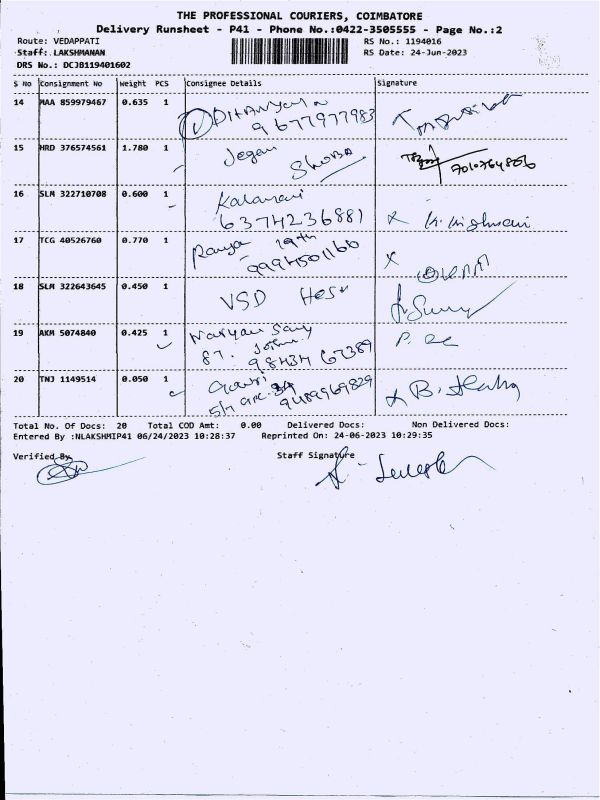 THE PROFESSIONAL COURIERS, COIMBATORE
Delivery Runsheet - P41 - Phone No.:0422-3505555 - Page No.:2
Route: VEDAPPATI RS No.: 1194016
Staff: LAKSHMANAN RS Date: 24-Jun-2023
DRS No.: DCJB119401602
S No Consignment No Weight PCS Consignee Details Signature
14 MAA 859979467 0.635 1
9677977983
15 HRD 376574561 1.780 1 Jegan
Shoba
7010764806
16 SLM 322710708 0.600 1 Kalamani
6374236881
17 TCG 40526760 0.770 1 Ramya 19th
9994501160
18 SLM 322643645 0.450 1 VSD
19 AKM 5074840 0.425 1 Naryan Samy
87.
98434 67389
20 TNJ 1149514 0.050 1 Gowri
9489969829
Total No. Of Docs: 20 Total COD Amt: 0.00 Delivered Docs: Non Delivered Docs:
Entered By :NLAKSHMIP41 06/24/2023 10:28:37 Reprinted On: 24-06-2023 10:29:35
Verified By Staff Signature